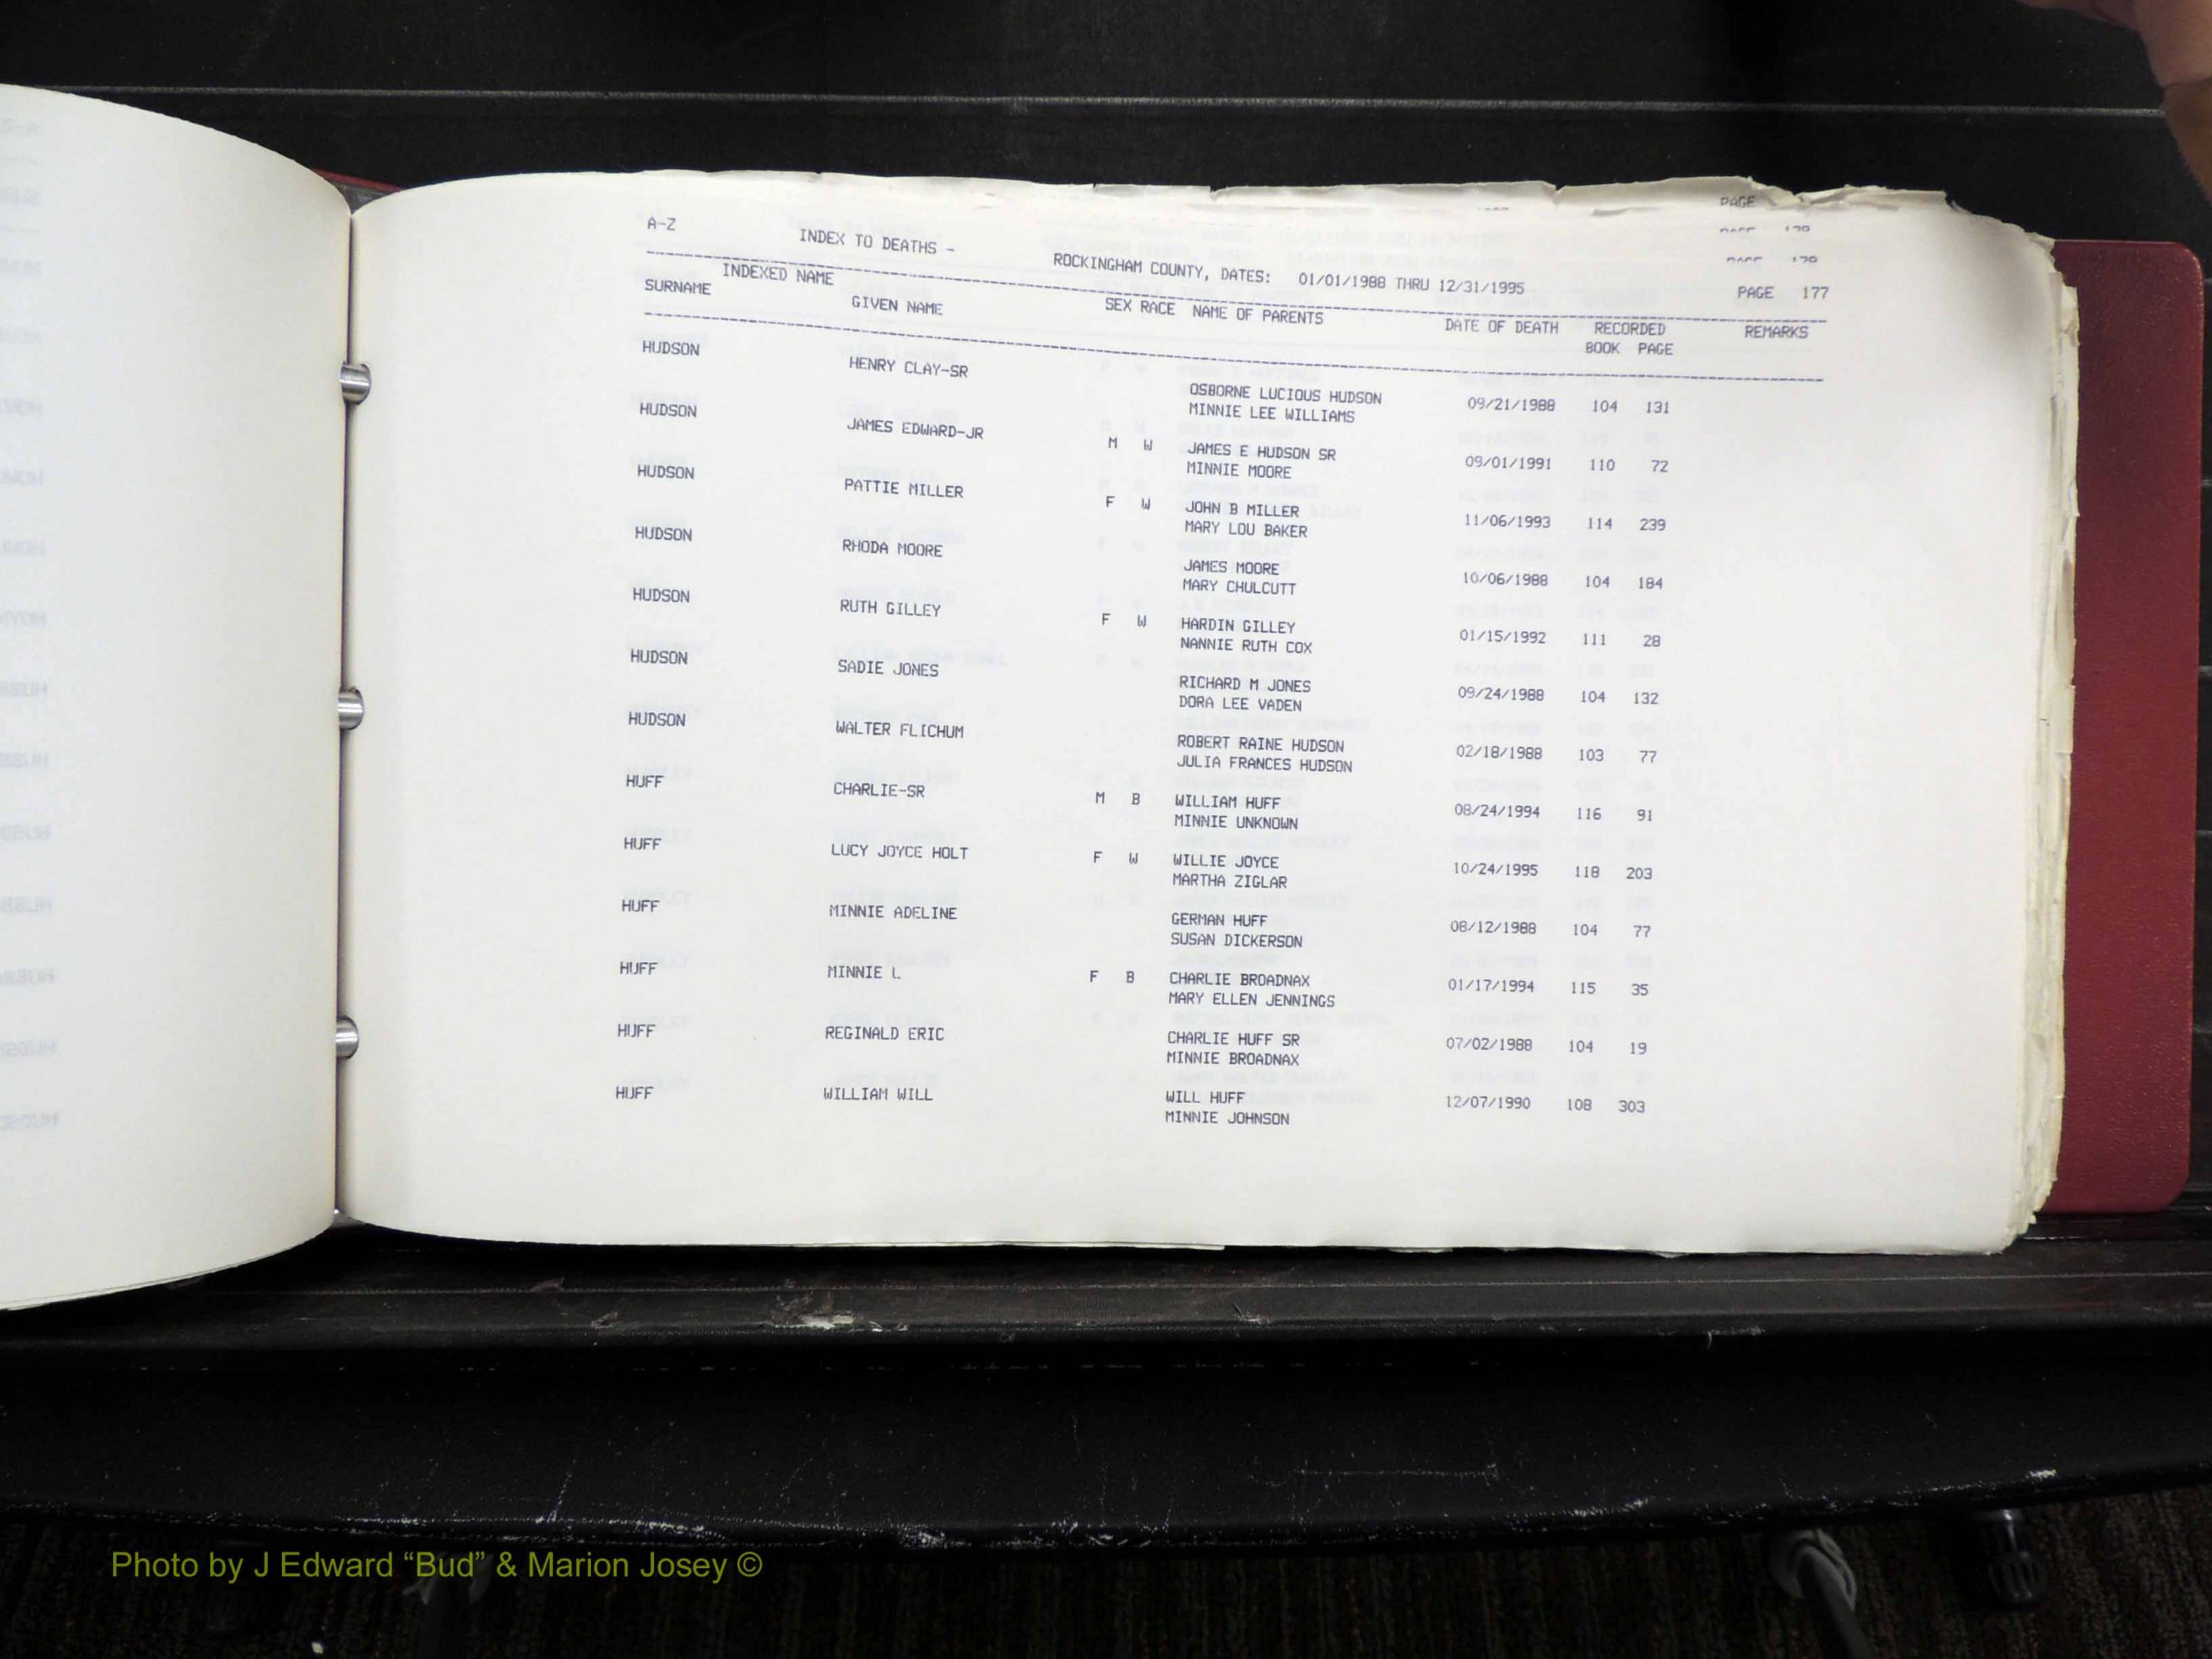 PAGE
A-Z INDEX TO DEATHS - ROCKINGHAM COUNTY, DATES: 01/01/1988 THRU 12/31/1995 PAGE 177
INDEXED NAME
SURNAME GIVEN NAME SEX RACE NAME OF PARENTS DATE OF DEATH RECORDED REMARKS
BOOK PAGE
HUDSON HENRY CLAY-SR OSBORNE LUCIOUS HUDSON 09/21/1988 104 131
MINNIE LEE WILLIAMS
HUDSON JAMES EDWARD-JR M W JAMES E HUDSON SR 09/01/1991 110 72
MINNIE MOORE
HUDSON PATTIE MILLER F W JOHN B MILLER 11/06/1993 114 239
MARY LOU BAKER
HUDSON RHODA MOORE JAMES MOORE 10/06/1988 104 184
MARY CHULCUTT
HUDSON RUTH GILLEY F W HARDIN GILLEY 01/15/1992 111 28
NANNIE RUTH COX
HUDSON SADIE JONES RICHARD M JONES 09/24/1988 104 132
DORA LEE VADEN
HUDSON WALTER FLICHUM ROBERT RAINE HUDSON 02/18/1988 103 77
JULIA FRANCES HUDSON
HUFF CHARLIE-SR M B WILLIAM HUFF 08/24/1994 116 91
MINNIE UNKNOWN
HUFF LUCY JOYCE HOLT F W WILLIE JOYCE 10/24/1995 118 203
MARTHA ZIGLAR
HUFF MINNIE ADELINE GERMAN HUFF 08/12/1988 104 77
SUSAN DICKERSON
HUFF MINNIE L F B CHARLIE BROADNAX 01/17/1994 115 35
MARY ELLEN JENNINGS
HUFF REGINALD ERIC CHARLIE HUFF SR 07/02/1988 104 19
MINNIE BROADNAX
HUFF WILLIAM WILL WILL HUFF 12/07/1990 108 303
MINNIE JOHNSON
Photo by J Edward “Bud” & Marion Josey ©